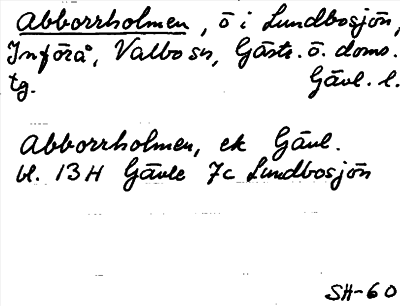 Abborrholmen, ö i Lundbosjön,
Inför å, Valbo sn, Gästr. ö. doms.
tg. Gävl. l.
Abborrholmen, ek Gävl.
bl. 13H Gävle 7c Lundbosjön
SH-60